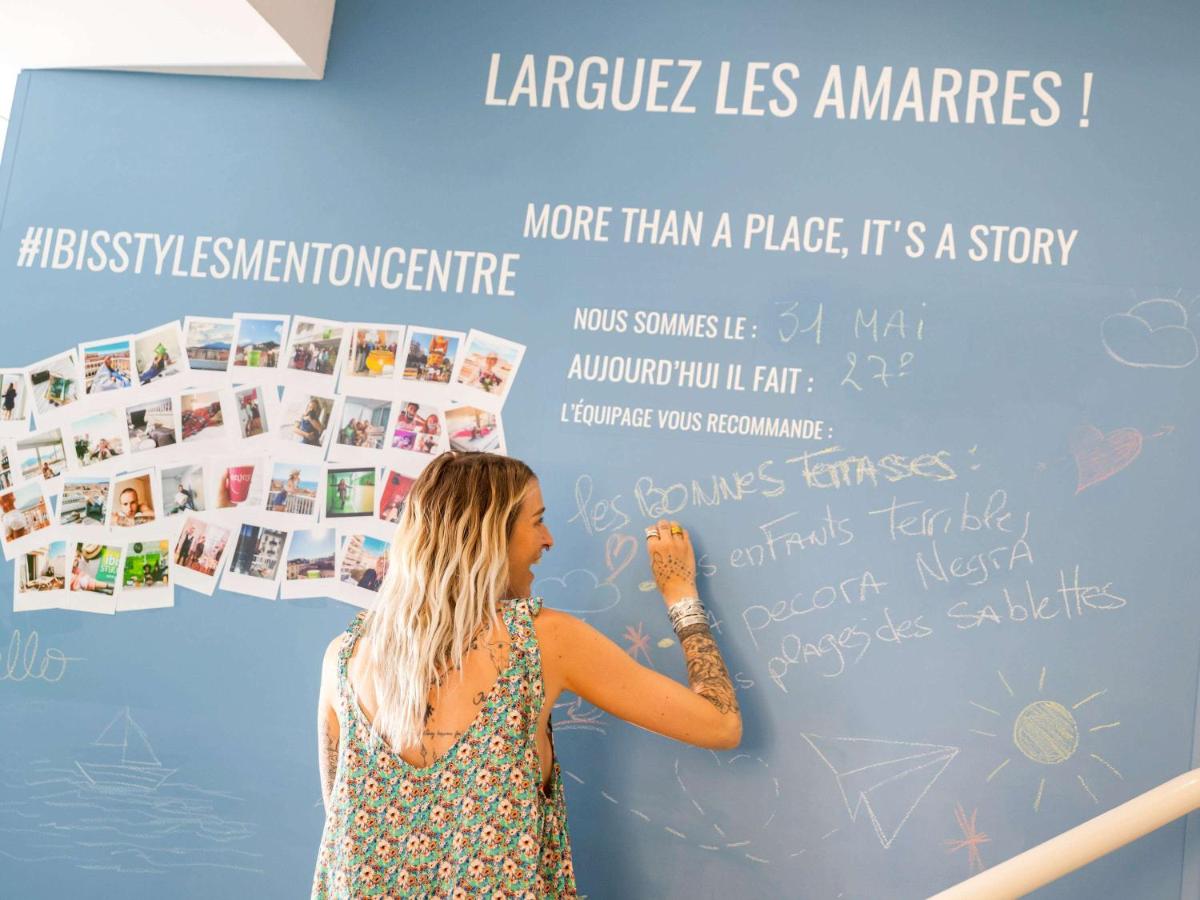 LARGUEZ LES AMARRES !
MORE THAN A PLACE, IT'S A STORY
#IBISSTYLESMENTONCENTRE
NOUS SOMMES LE : 31 MAi
AUJOURD'HUI IL FAIT : 27°
L'ÉQUIPAGE VOUS RECOMMANDE :
les BONNES TerrASSES :
enFAnts terribles
pecorA NegrA
plAges des sAblettes